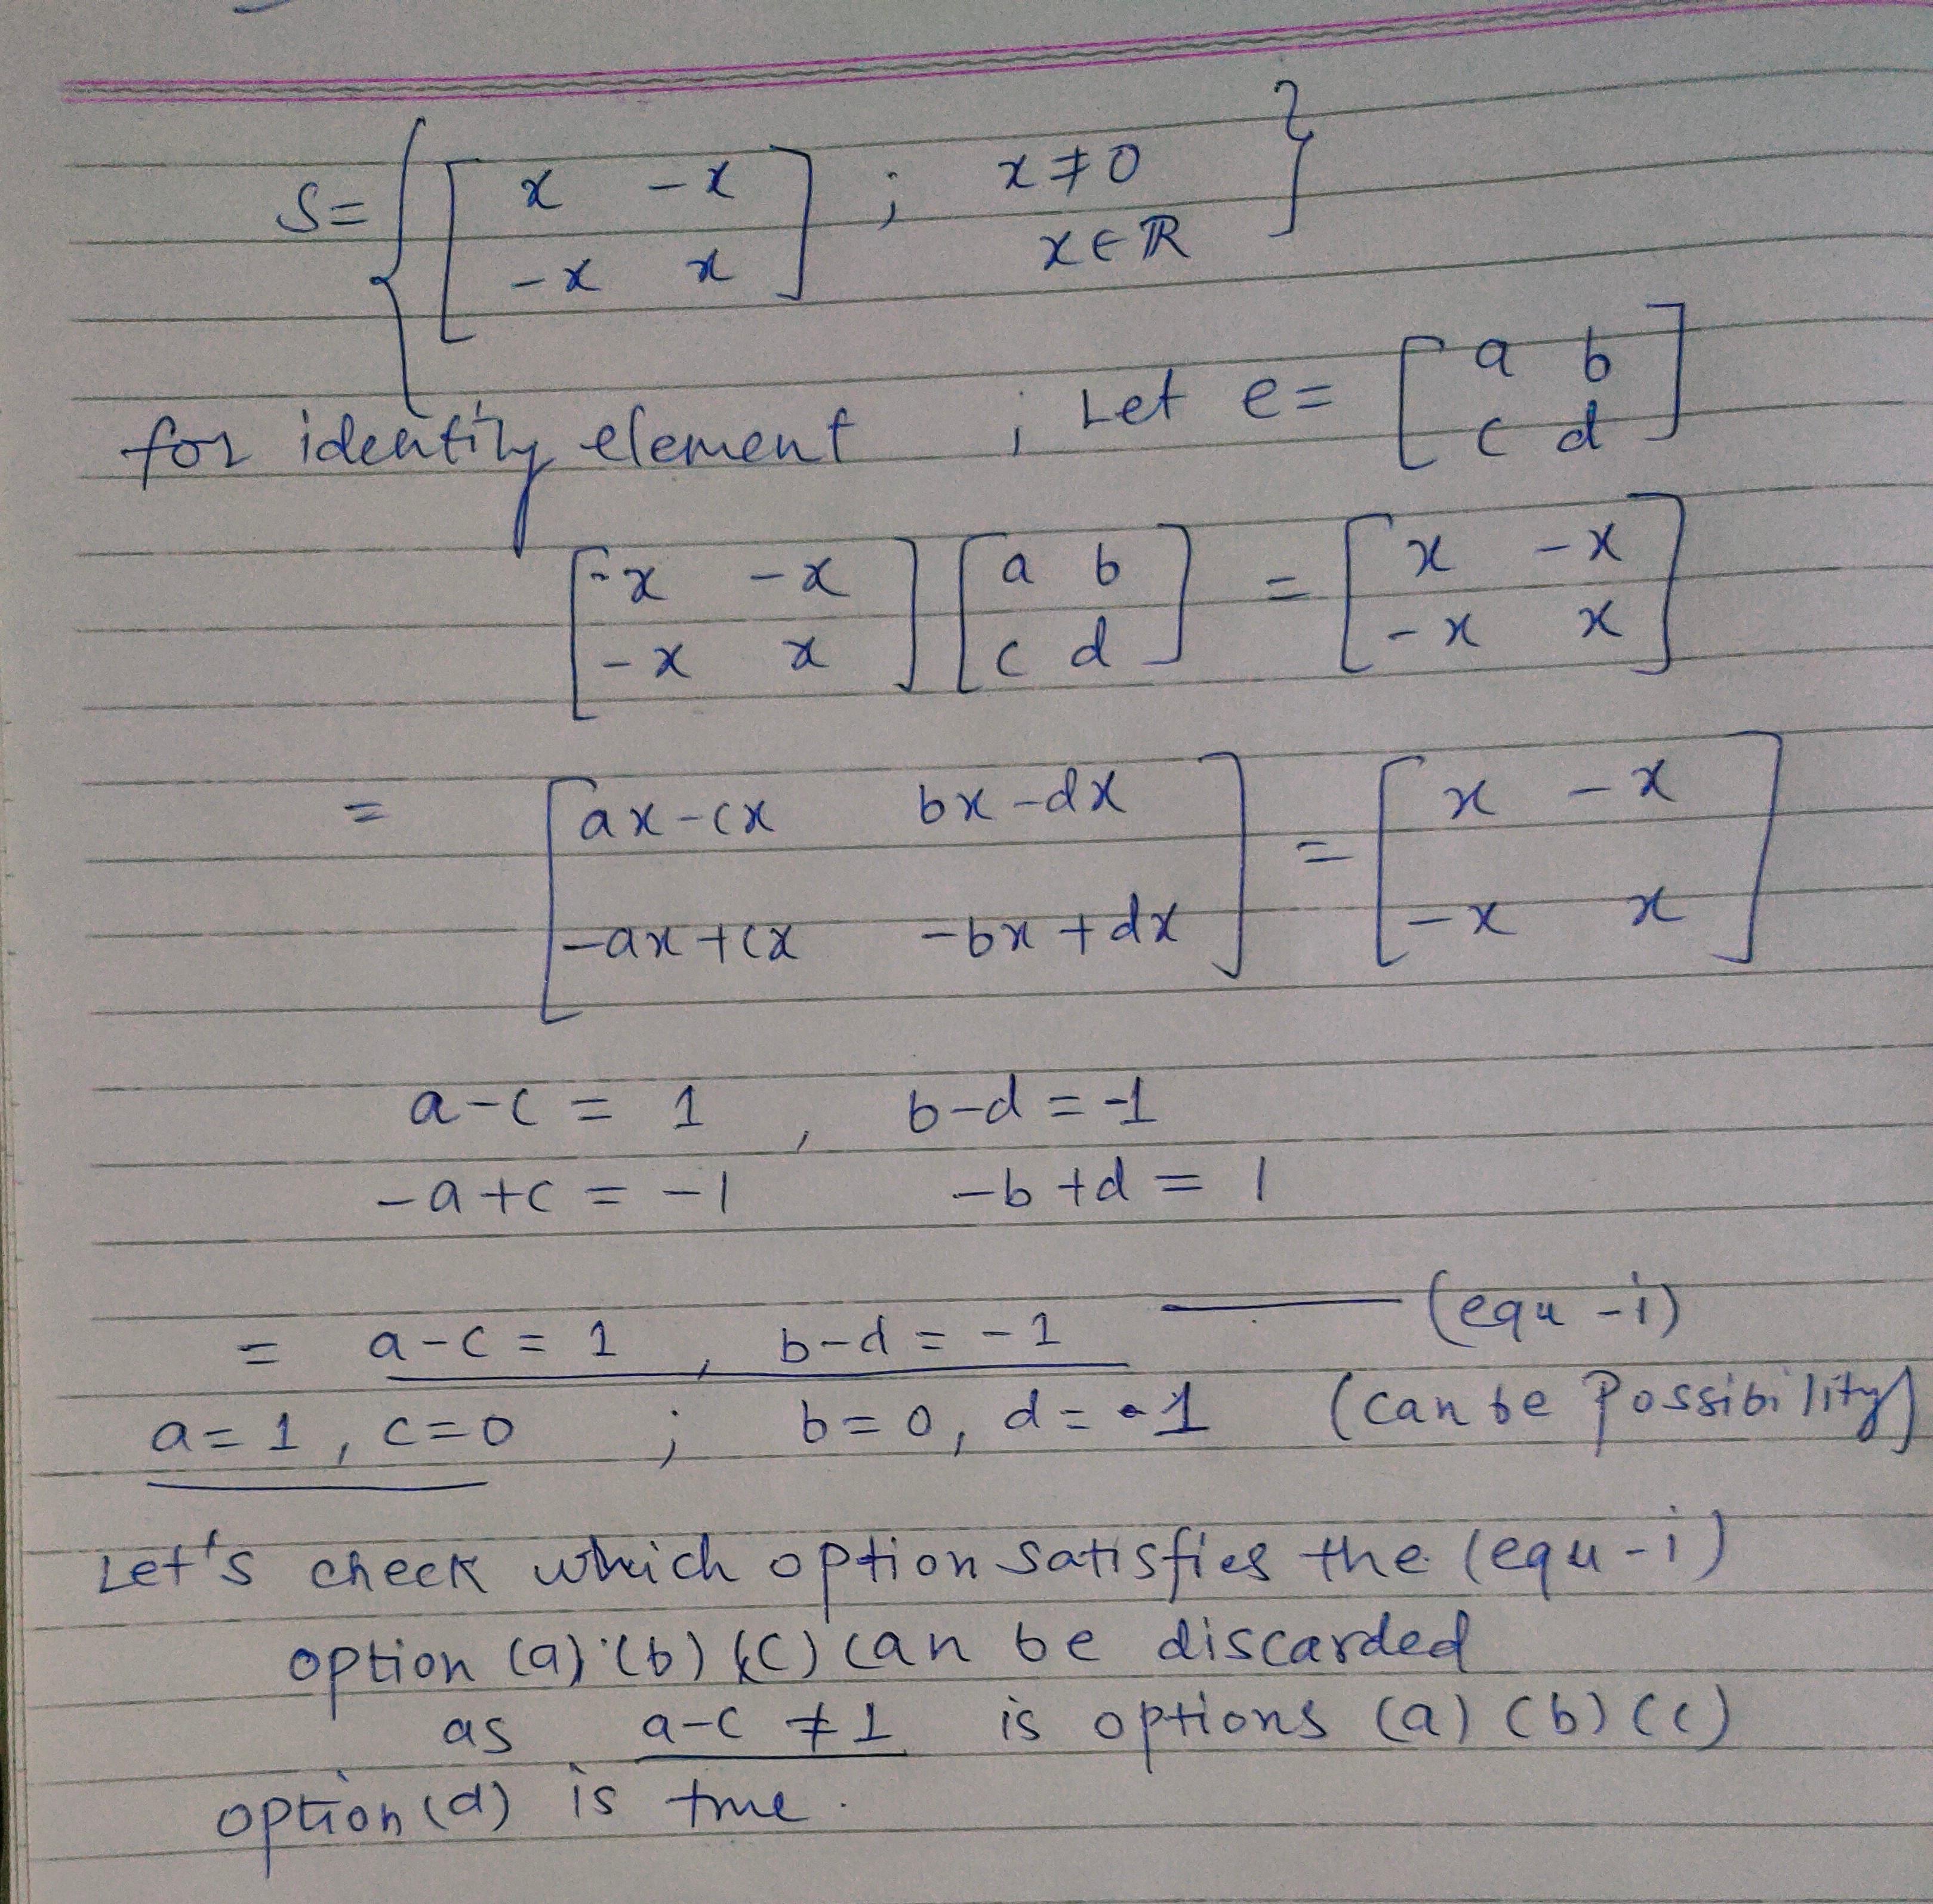 S = { [ x -x ; x ≠ 0 }
-x x ] x ∈ ℝ
for identity element ; Let e = [ a b
c d ]
[ -x -x ] [ a b ] = [ x -x ]
[ -x x ] [ c d ] [ -x x ]
= [ ax-cx bx-dx ] = [ x -x ]
[ -ax+cx -bx+dx ] [ -x x ]
a-c = 1 , b-d = -1
-a+c = -1 -b+d = 1
= a-c = 1 , b-d = -1 —— (equ-i)
a=1, c=0 ; b=0, d=-1 (can be Possibility)
Let's check which option satisfies the (equ-i)
option (a) (b) (c) can be discarded
as a-c ≠ 1 is options (a) (b) (c)
option (d) is true.